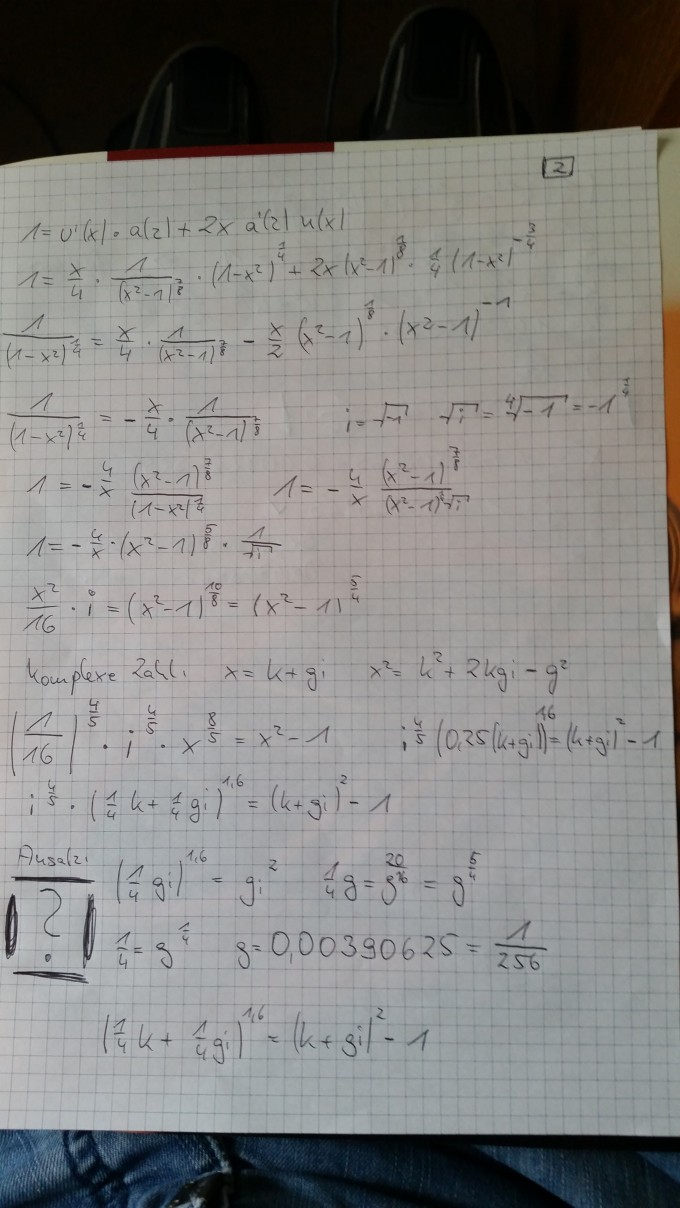 2
1 = u'(x) · a(z) + 2x a'(z) u(x)
1 = x/4 · 1/(x²-1)^(7/8) · (1-x²)^(1/4) + 2x (x²-1)^(1/8) · 1/4 (1-x²)^(-3/4)
1/(1-x²)^(1/4) = x/4 · 1/(x²-1)^(7/8) - x/2 (x²-1)^(1/8) · (x²-1)^(-1)
1/(1-x²)^(1/4) = -x/4 · 1/(x²-1)^(7/8) i = √-1 √i = ⁴√-1 = -1^(1/4)
1 = -4/x (x²-1)^(7/8)/(1-x²)^(1/4) 1 = -4/x (x²-1)^(7/8)/(x²-1)^(1/4)√i
1 = -4/x · (x²-1)^(5/8) · 1/√i
x²/16 · i = (x²-1)^(10/8) = (x²-1)^(5/4)
Komplexe Zahl: x = k + gi x² = k² + 2kgi - g²
(1/16)^(4/5) · i^(4/5) · x^(8/5) = x² - 1 i^(4/5) (0,25(k+gi))^1,6 = (k+gi)² - 1
i^(4/5) · (1/4 k + 1/4 gi)^1,6 = (k+gi)² - 1
Ansatz:
(1/4 gi)^1,6 = gi² 1/4 g = g^(20/16) = g^(5/4)
?
1/4 = g^(1/4) g = 0,00390625 = 1/256
(1/4 k + 1/4 gi)^1,6 = (k+gi)² - 1